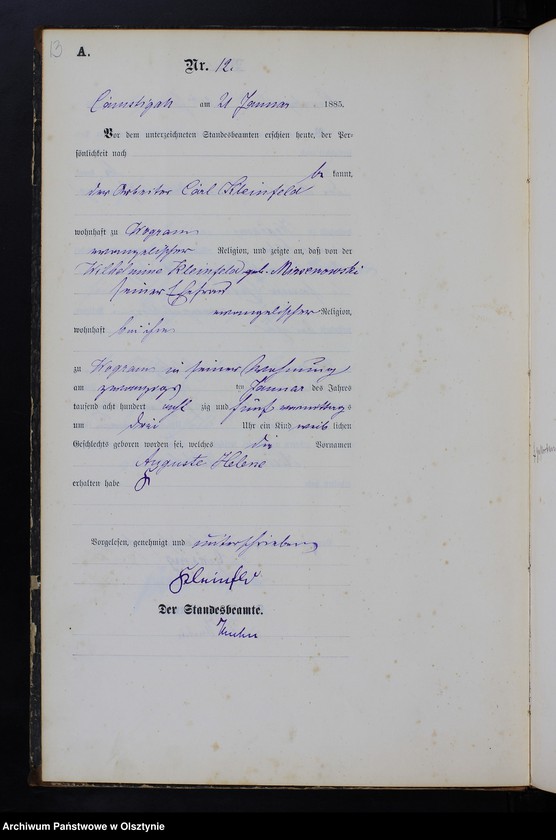 13
A.
Nr. 12.
am 21 Januar 1885.
Vor dem unterzeichneten Standesbeamten erschien heute, der Per-
sönlichkeit nach
be kannt,
der Arbeiter Carl Kleinfeld
wohnhaft zu Wogram
evangelischer Religion, und zeigte an, daß von der
Wilhelmine Kleinfeld geb.
seiner Ehefrau
evangelischer Religion,
wohnhaft bei ihm
zu Wogram in seiner Wohnung
am zwanzigs ten Januar des Jahres
tausend acht hundert acht zig und fünf Vormittags
um drei Uhr ein Kind weib lichen
Geschlechts geboren worden sei, welches die Vornamen
Auguste Helene
erhalten habe
Vorgelesen, genehmigt und unterschrieben
Kleinfeld
Der Standesbeamte.
Archiwum Państwowe w Olsztynie